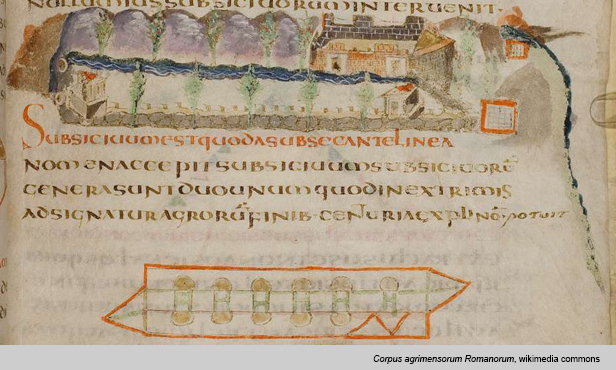 NULLUMIUSSUBSICIUORUMINTERUENIT·
SUBSICIUUMESTQUODASUBSECANTELINEA
NOMENACCEPITSUBSICIUUMSUBSICIUORŪ
GENERASUNTDUOUNUMQUODINEXTRIMIS
ADSIGNATURAGRORŪFINIB·CENTURIAEXPLINŌ·POTUIT
Corpus agrimensorum Romanorum, wikimedia commons